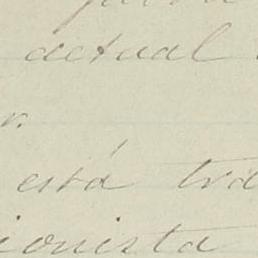 actual
r.
está tra
ionista